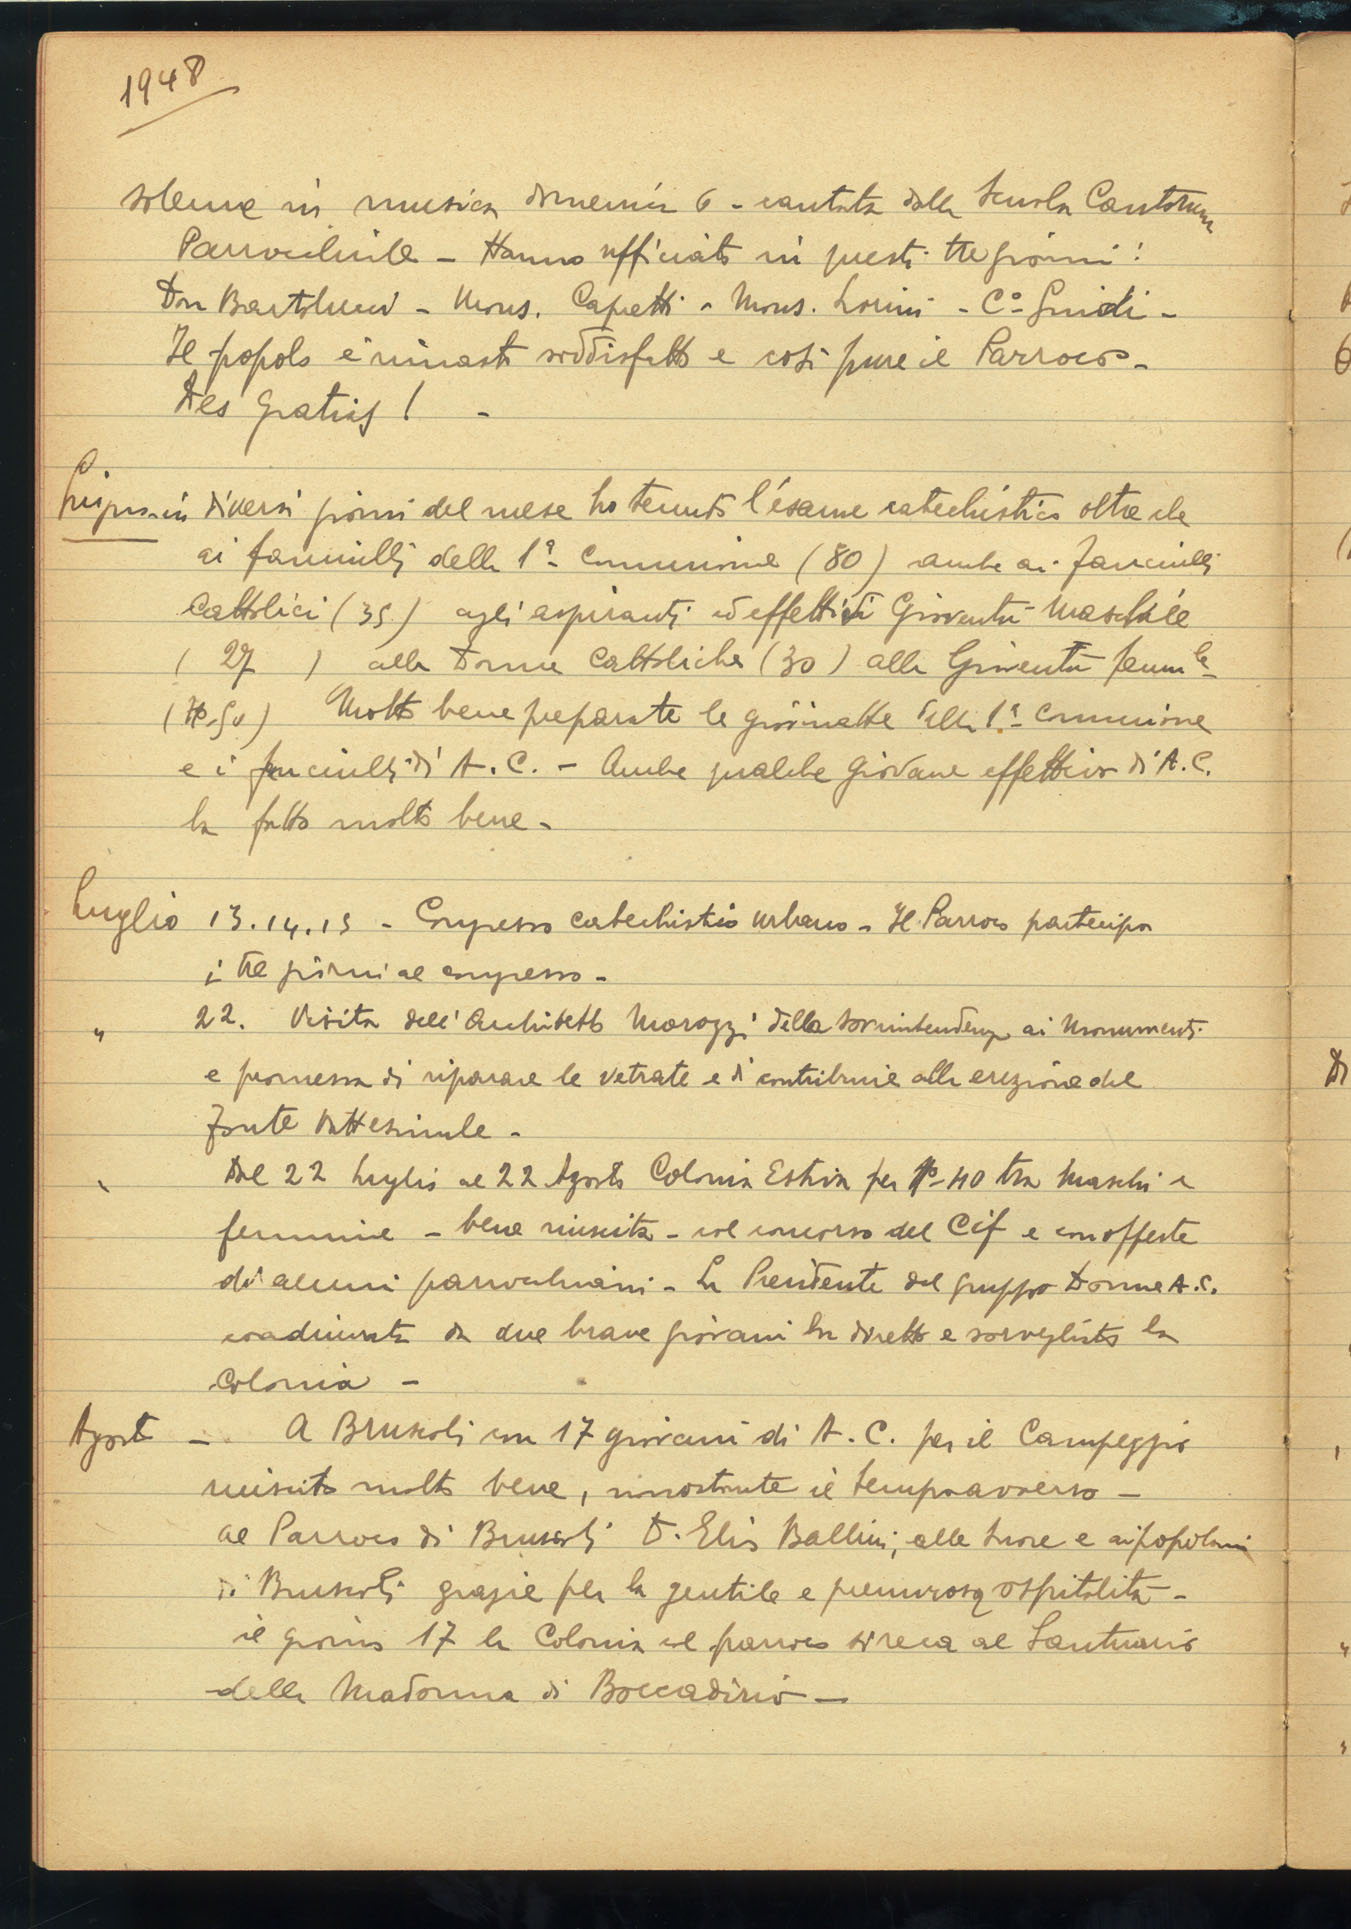 1948
solenne in musica domenica 6 - cantata dalla Scuola Cantorum
Parrocchiale - Hanno ufficiato in questi tre giorni:
Don Bartolucci - Mons. Capretti - Mons. Lorini - C° Guidi -
Il popolo è rimasto soddisfatto e così pure il Parroco -
Deo gratias! -
Giugno - in diversi giorni del mese ho tenuto l'esame catechistico oltre che
ai fanciulli della 1ª Comunione (80) anche ai fanciulli
Cattolici (35) agli aspiranti ed effettivi Gioventù Maschile
(27) alle Donne Cattoliche (30) alla Gioventù femm.le
Molto bene preparate le giovinette della 1ª Comunione
e i fanciulli di A.C. - Anche qualche giovane effettivo di A.C.
ha fatto molto bene -
Luglio 13.14.15 - Congresso catechistico urbano - Il Parroco partecipa
i tre giorni al congresso -
" 22. Visita dell'Architetto Morozzi della Sovrintendenza ai Monumenti
e promessa di riparare le vetrate e di contribuire alla erezione del
fonte battesimale -
" Dal 22 Luglio al 22 Agosto Colonia Estiva per N° 40 tra Maschi e
femmine - bene riuscita - col concorso del Cif e con offerte
di alcuni parrocchiani - La Presidente del gruppo Donne A.C.
coadiuvata da due brave giovani ha diretto e sorvegliato la
Colonia -
Agosto - A Bruscoli con 17 giovani di A.C. per il Campeggio
riuscito molto bene, nonostante il tempo avverso -
al Parroco di Bruscoli D. Elio Ballini, alle Suore e ai popolani
di Bruscoli grazie per la gentile e premurosa ospitalità -
il giorno 17 la Colonia col parroco si reca al Santuario
della Madonna di Boccadirio -